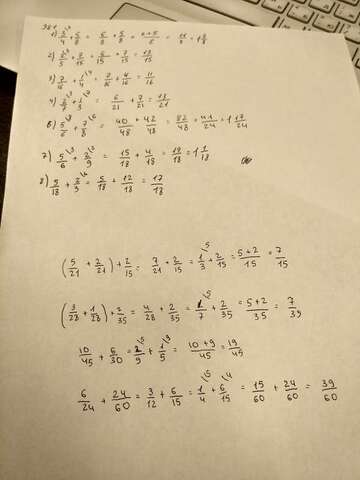 1) 3/4 + 5/8 = 6/8 + 5/8 = 6+5/8 = 11/8 = 1 3/8
2) 2/5 + 7/15 = 6/15 + 7/15 = 13/15
3) 7/16 + 1/4 = 7/16 + 4/16 = 11/16
6) 5/6 + 7/8 = 40/48 + 42/48 = 82/48 = 41/24 = 1 17/24
7) 5/6 + 2/9 = 15/18 + 4/18 = 19/18 = 1 1/18
8) 5/18 + 2/3 = 5/18 + 12/18 = 17/18
(5/21 + 2/21) + 2/15 = 7/21 + 2/15 = 1/3 \5 + 2/15 = 5+2/15 = 7/15
(3/28 + 1/28) + 2/35 = 4/28 + 2/35 = 1/7 \5 + 2/35 = 5+2/35 = 7/35
10/45 + 6/30 = 2/9 \5 + 1/5 \9 = 10+9/45 = 19/45
6/24 + 24/60 = 3/12 + 6/15 = 1/4 \15 + 6/15 \4 = 15/60 + 24/60 = 39/60